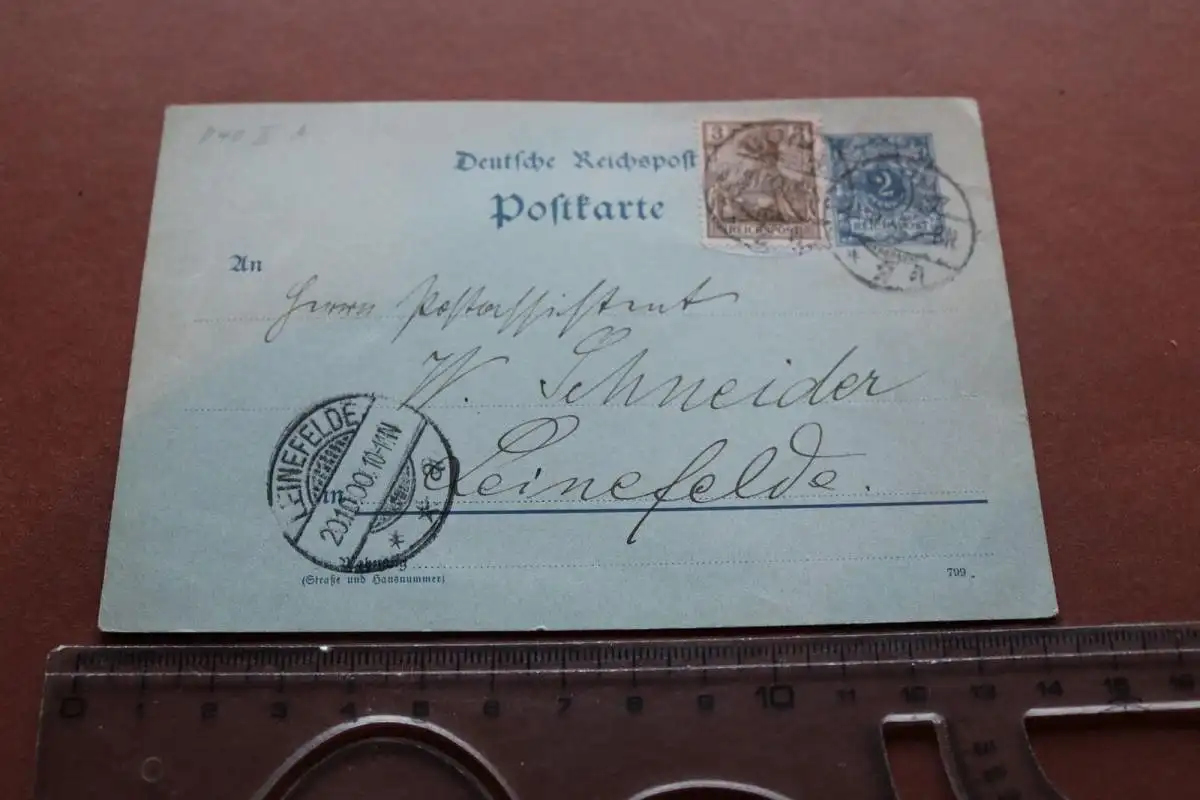 Deutsche Reichspost
Postkarte
3 3
REICHSPOST
2
REICHSPOST
An
Herrn Postassistent
W. Schneider
LEINEFELDE
20.10.00. 10-11N
a
* *
in Leinefelde.
Wohnung
(Straße und Hausnummer)
799
0 1 2 3 4 5 6 7 8 9 10 11 12 13 14 15 16